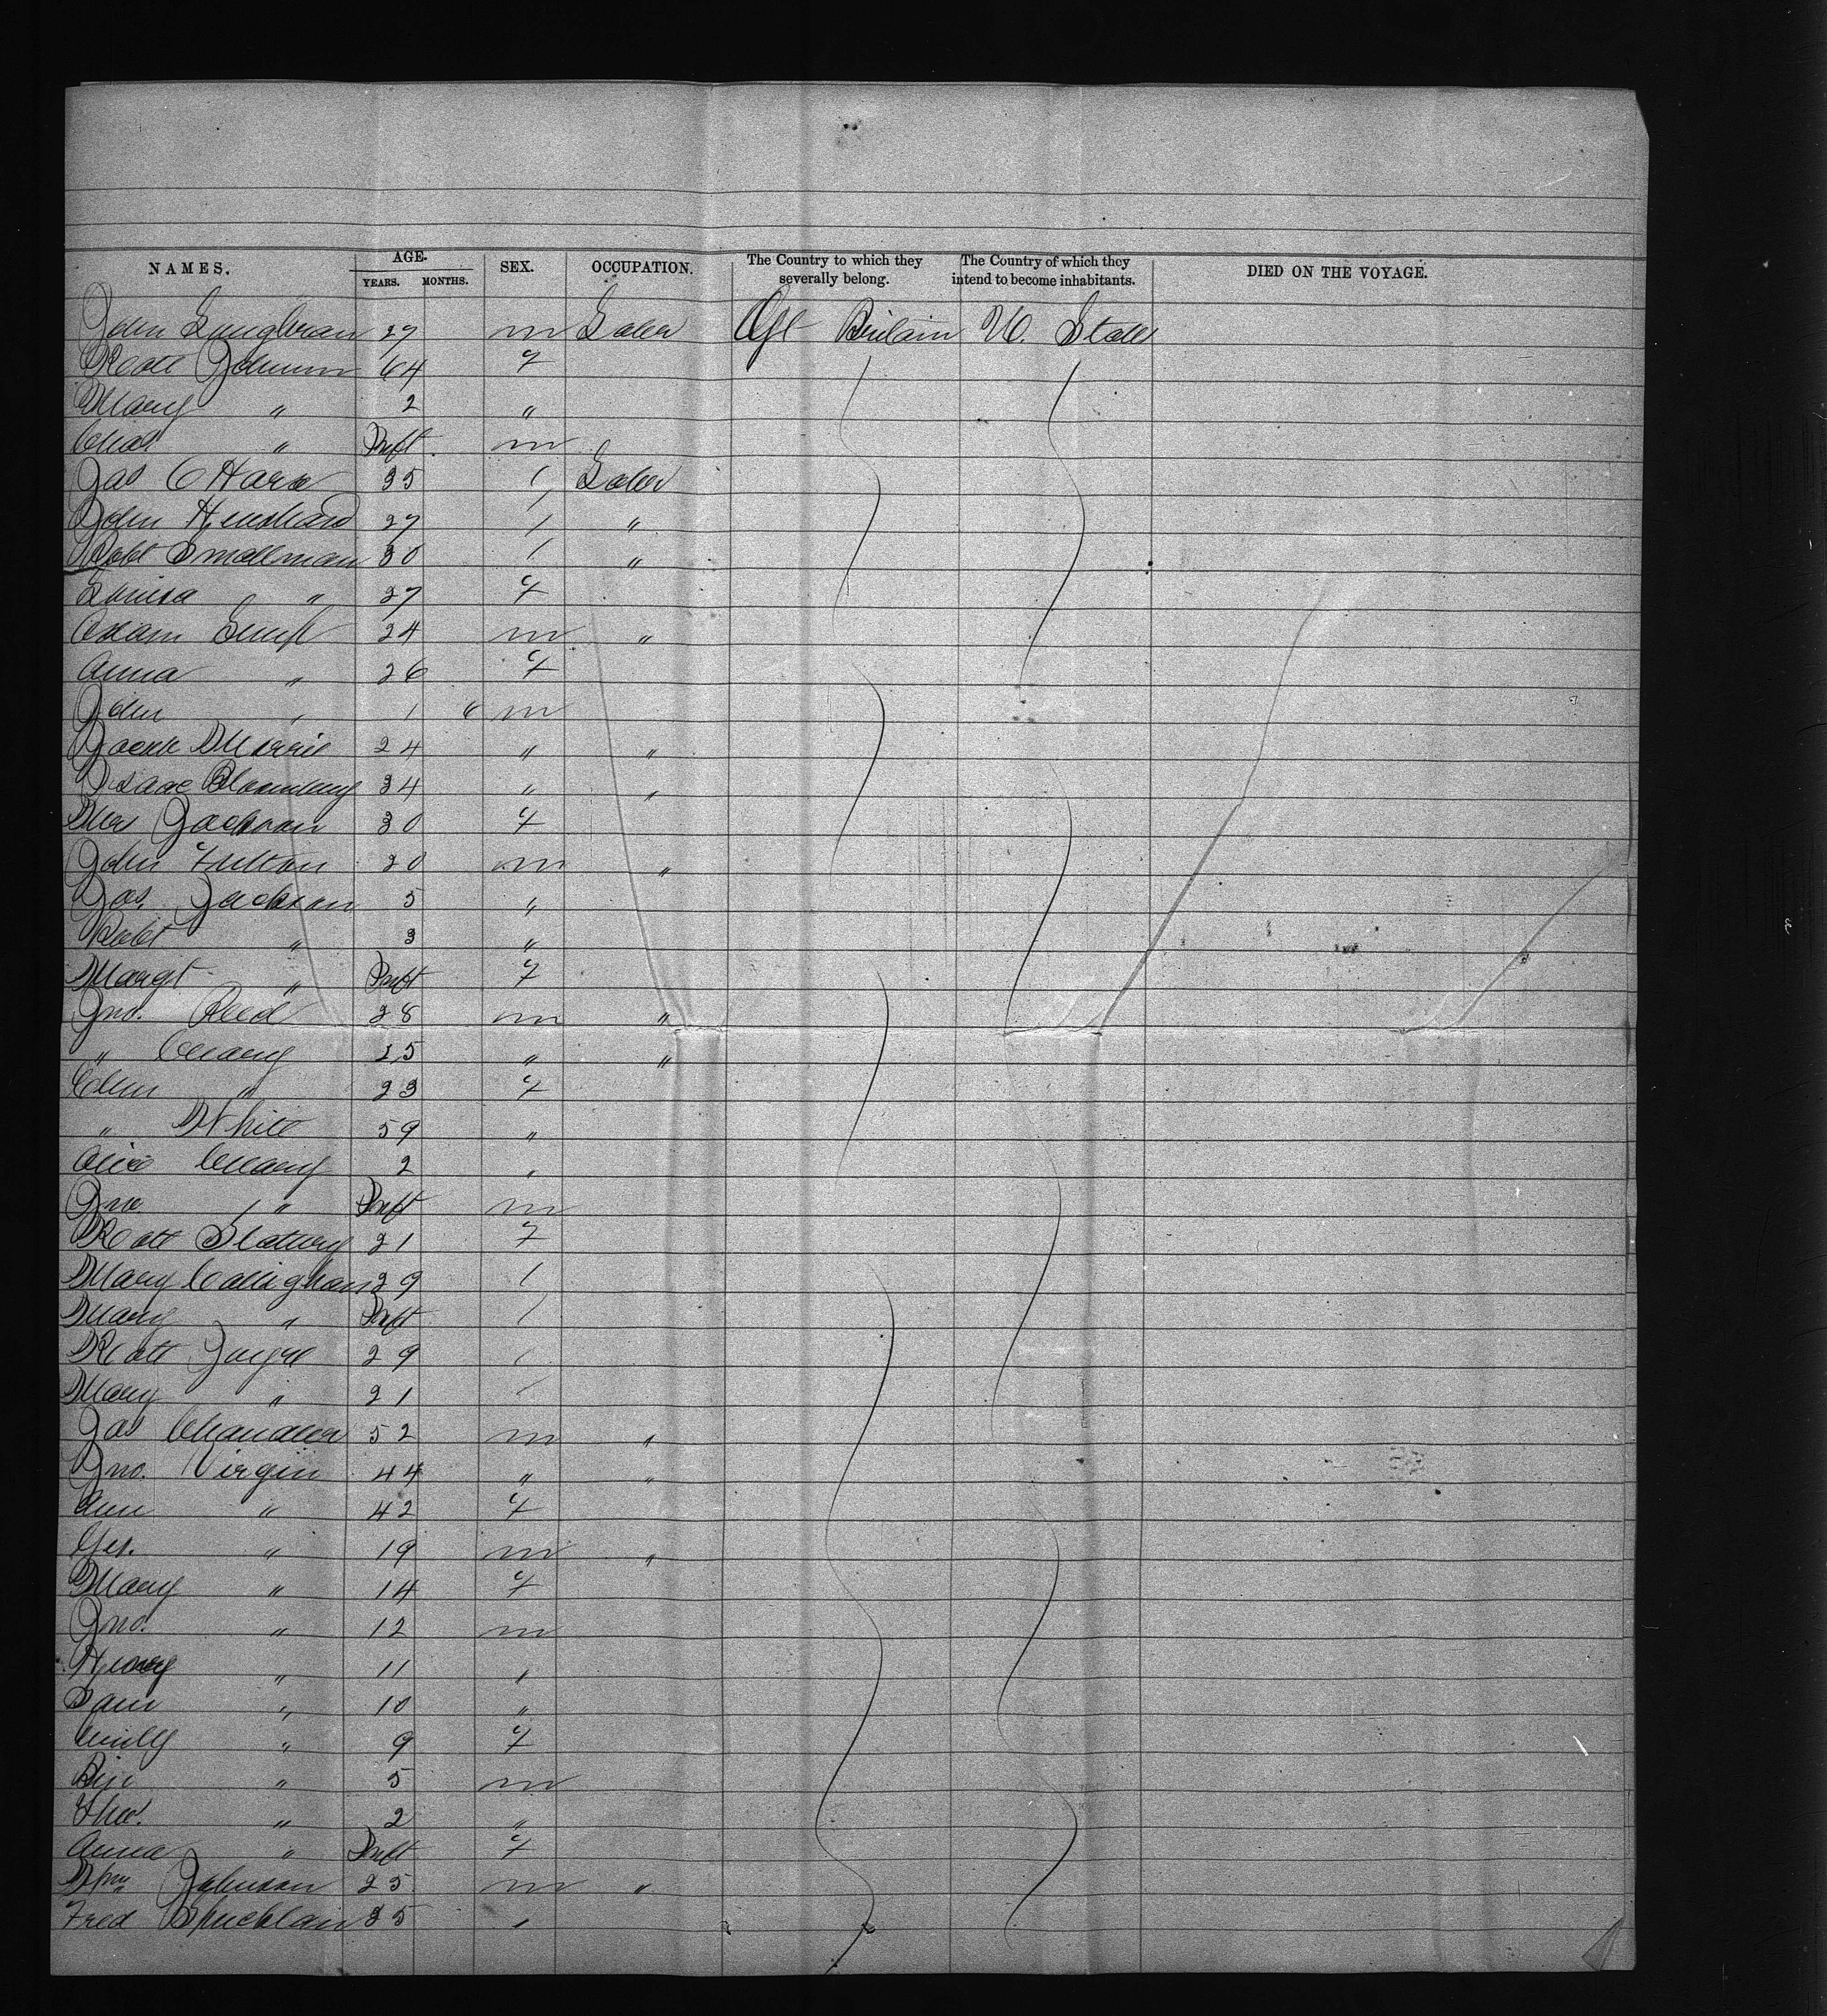 NAMES. AGE. SEX. OCCUPATION. The Country to which they severally belong. The Country of which they intend to become inhabitants. DIED ON THE VOYAGE.
YEARS. MONTHS.
John 27 m Labr Gt Britain U. States
Kate Johnson 64 f
Mary " 2 "
Chas " Inft m
Jas O Hara 35 / Labr
John Henshaw 27 / "
Robt Smallman 30 / "
Louisa " 27 f
Adam 24 m "
Anna " 26 f
John " 1 6 m
24 " "
Isaac Bloomberg 34 " "
Mrs Jackson 30 f
John Fulton 20 m "
Jas. Jackson 5 "
Robt " 3 "
Margt " Inft f
Jno. Reed 28 m "
" 25 " "
Ellen " 23 f
" White 59 "
Alice 2 "
Jno " Inft m
Kate Slattery 21 f
Mary Callighan 29 /
Mary " Inft /
Kate Joyce 29 /
Mary " 21 /
Jas Chandler 52 m "
Jno. Virgin 44 " "
Ann " 42 f
Geo. " 19 m "
Mary " 14 f
Jno. " 12 m
Henry " 11 "
Saml " 10 "
Emily " 9 f
Ben " 5 m
Thos. " 2 "
Anna " Inft f
Wm Johnson 25 m "
Fred 35 "